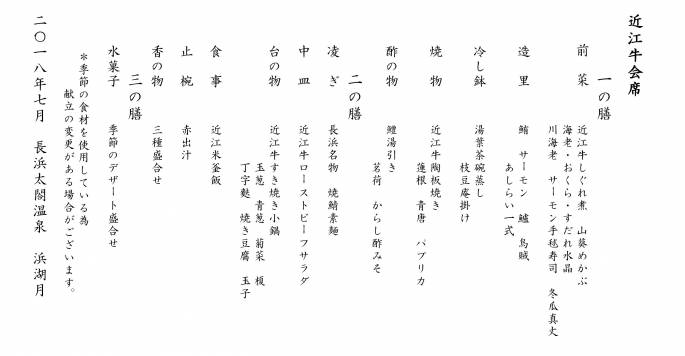 近江牛会席
一の膳
前菜 近江牛しぐれ煮 山葵めかぶ
海老・おくら・すだれ水晶
川海老 サーモン手毬寿司 冬瓜真丈
造里 鮪 サーモン 鱸 烏賊
あしらい一式
冷し鉢 湯葉茶碗蒸し
枝豆庵掛け
焼物 近江牛陶板焼き
蓮根 青唐 パプリカ
酢の物 鱧湯引き
茗荷 からし酢みそ
二の膳
凌ぎ 長浜名物 焼鯖素麺
中皿 近江牛ローストビーフサラダ
台の物 近江牛すき焼き小鍋
玉葱 青葱 菊菜 榎
丁字麩 焼き豆腐 玉子
食事 近江米釜飯
止椀 赤出汁
香の物 三種盛合せ
三の膳
水菓子 季節のデザート盛合せ
＊季節の食材を使用している為
献立の変更がある場合がございます。
二〇一八年七月 長浜太閤温泉 浜湖月